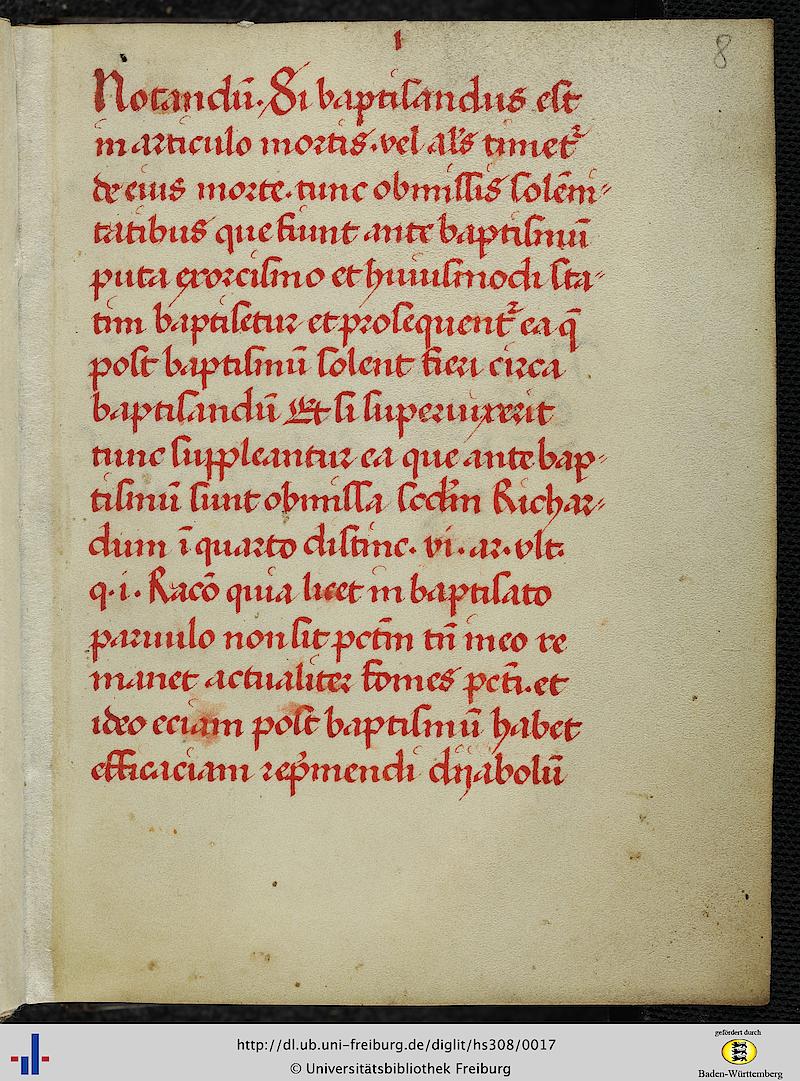 1
8
Notandū. Si baptisandus est
in articulo mortis. vel al's timetꝛ
de eius morte. tunc obmissis solēni-
tatibus que fiunt ante baptismū
puta exorcismo et huiusmodi sta-
tim baptisetur et prosequentꝛ ea q̄
post baptismū solent fieri circa
baptisandū Et si superuixerit
tunc suppleantur ea que ante bap-
tismū sunt obmissa scd̄m Richar-
dum ī quarto distinc. vi. ar. vlt.
q. i. Racō quia licet in baptisato
paruulo non sit pctm̄ tn̄ in eo re
manet actualiter fomes pcti̅. et
ideo eciam post baptismū habet
efficaciam rep̄mendi dyabolū
http://dl.ub.uni-freiburg.de/diglit/hs308/0017
© Universitätsbibliothek Freiburg
gefördert durch
Baden-Württemberg